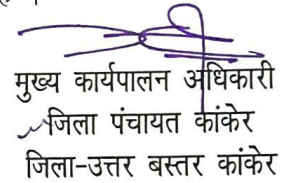 मुख्य कार्यपालन अधिकारी
जिला पंचायत कांकेर
जिला-उत्तर बस्तर कांकेर